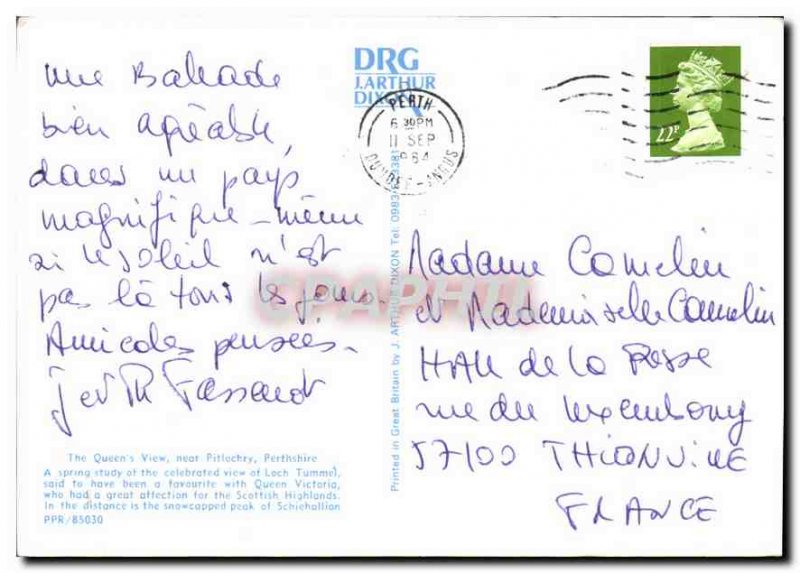 une Balade
bien agréable,
dans un pays
magnifique - même
si le soleil n'est
pas là tous les jours.
Amicales pensées.
J et Th
The Queen's View, near Pitlochry, Perthshire
A spring study of the celebrated view of Loch Tummel,
said to have been a favourite with Queen Victoria,
who had a great affection for the Scottish Highlands.
In the distance is the snowcapped peak of Schiehallion
PPR/85030
DRG
J. ARTHUR
DIXON
Printed in Great Britain by J. ARTHUR DIXON Tel: 0983
PERTH
6 30PM
11 SEP
1984
DUNDEE - ANGUS
22P
Madame Camelin
et Mademoiselle Camelin
HAll de la
rue du Luxembourg
57100 THIONVILLE
FRANCE
CPAPHIL